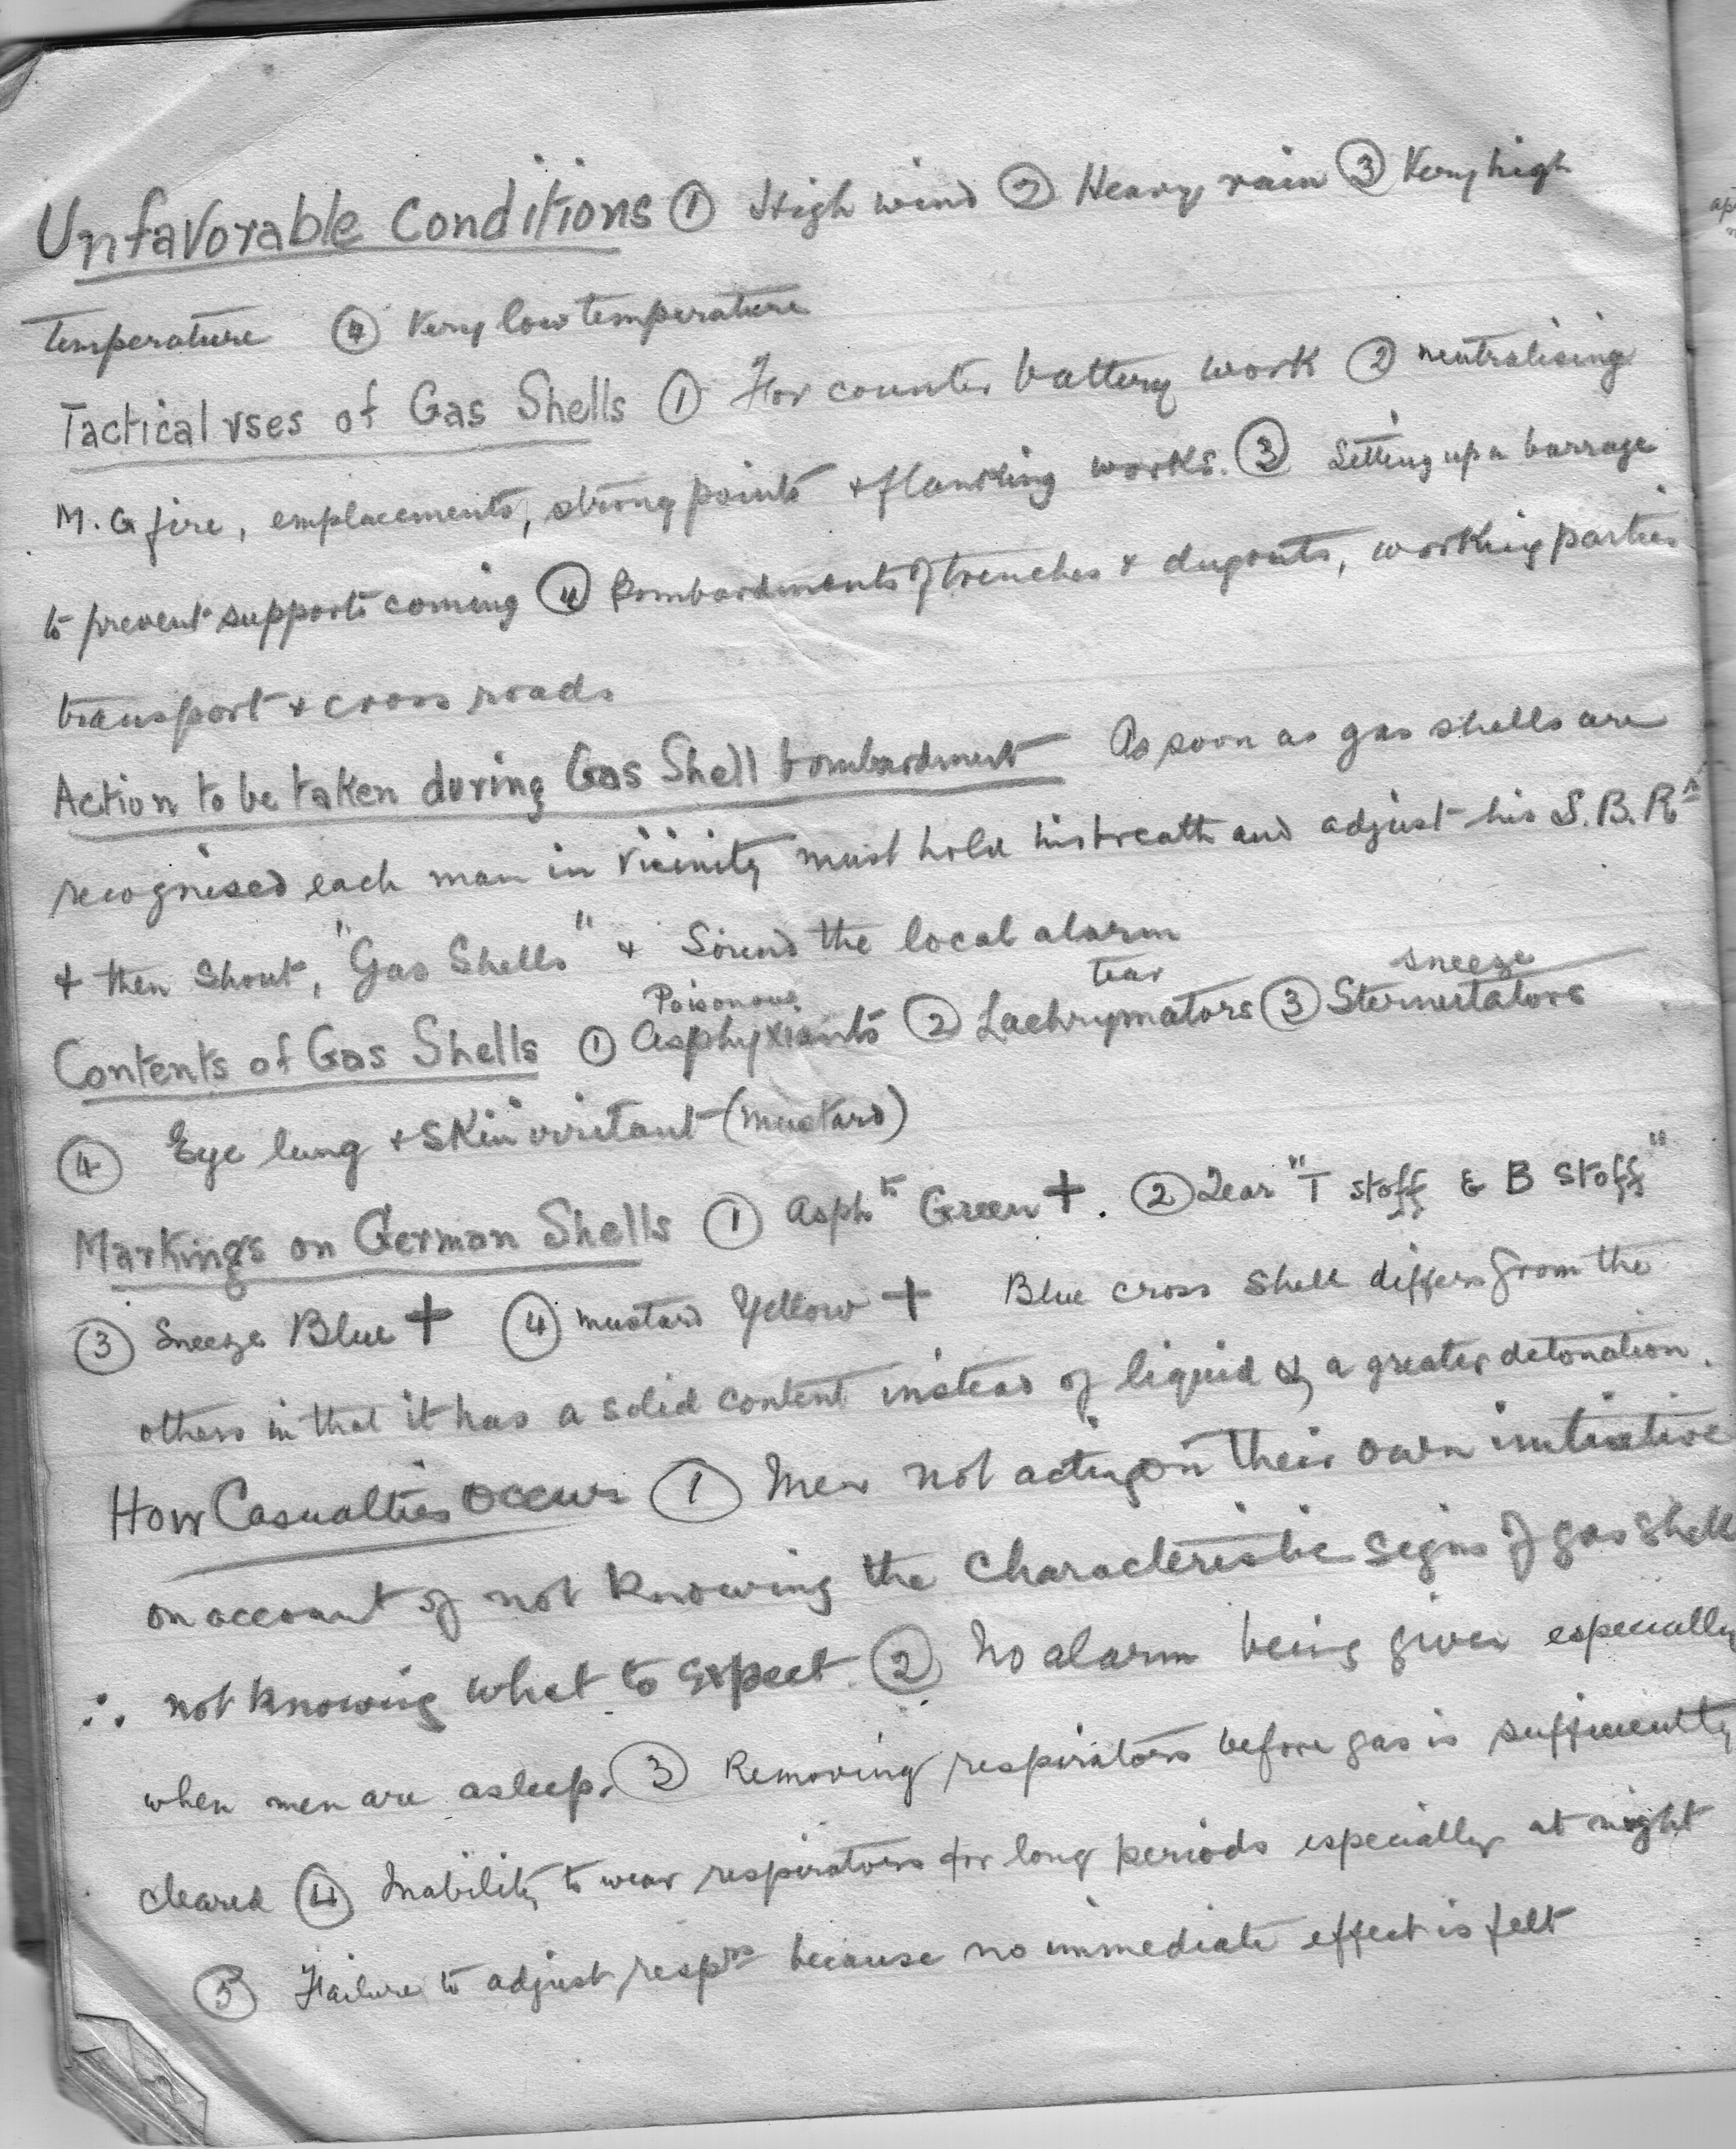 Unfavorable Conditions ① High wind ② Heavy rain ③ Very high
temperature ④ Very low temperature
Tactical uses of Gas Shells ① For counter battery work ② neutralising
M.G fire, emplacements, strong points + flanking works. ③ Setting up a barrage
to prevent supports coming ④ Bombardments of trenches + dugouts, working parties
transport + cross roads
Action to be taken during Gas Shell bombardment As soon as gas shells are
recognised each man in vicinity must hold his breath and adjust his S.B.R
+ then shout, "Gas Shells" + Sound the local alarm
Poisonous tear sneeze
Contents of Gas Shells ① Asphyxiants ② Lachrymators ③ Sternutators
④ Eye lung + skin irritant (mustard)
Markings on German Shells ① Asphts Green +. ② Tear "T stoff & B stoff"
③ Sneeze Blue + ④ mustard Yellow + Blue cross shell differs from the
others in that it has a solid content instead of liquid & a greater detonation.
How Casualties occur ① Men not acting on their own initiative
on account of not knowing the characteristic signs of gas shell
∴ not knowing what to expect. ② No alarm being given especially
when men are asleep. ③ Removing respirators before gas is sufficiently
cleared ④ Inability to wear respirators for long periods especially at night
⑤ Failure to adjust resprs because no immediate effect is felt